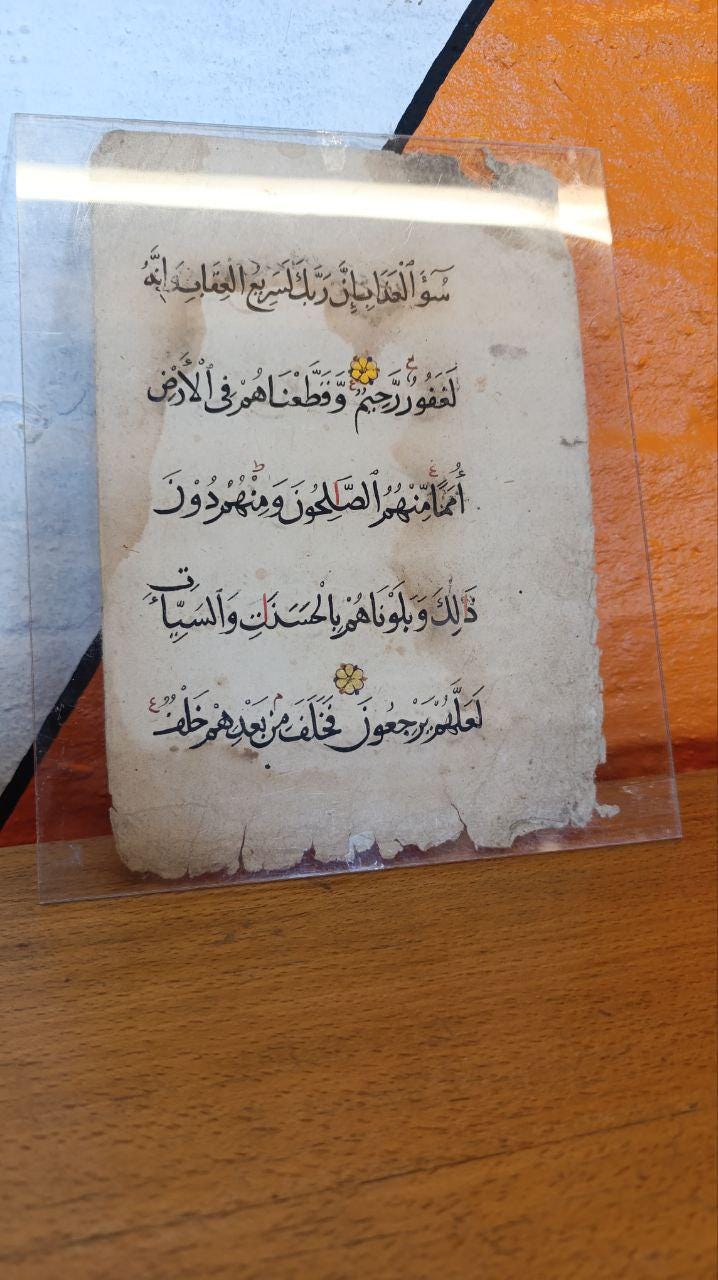 سُوٓءَ ٱلْعَذَابِ إِنَّ رَبَّكَ لَسَرِيعُ الْعِقَابِ وَإِنَّهُ
لَغَفُورٌ رَّحِيمٌ وَقَطَّعْنَاهُمْ فِي ٱلْأَرْضِ
أُمَمًا مِّنْهُمُ ٱلصَّٰلِحُونَ وَمِنْهُمْ دُوْنَ
ذَٰلِكَ وَبَلَوْنَاهُمْ بِالْحَسَنَٰتِ وَٱلسَّيِّئَاتِ
لَعَلَّهُمْ يَرْجِعُونَ فَخَلَفَ مِنْ بَعْدِهِمْ خَلْفٌ